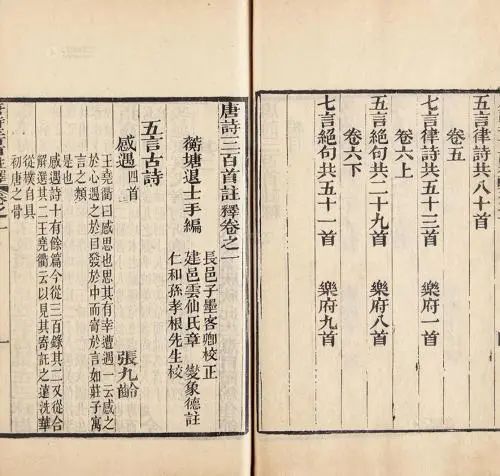 五言律詩共八十首
卷五
七言律詩共五十三首 樂府一首
卷六上
五言絕句共二十九首 樂府八首
卷六下
七言絕句共五十一首 樂府九首
唐詩三百首註釋卷之一
長邑子墨客卿校正
蘅塘退士手編 建邑雲仙氏章燮象德註
仁和孫孝根先生校
五言古詩
感遇四首 張九齡
王堯衢曰感思也思其有幸遭遇一云感之
於心遇之於目發於中而寄於言如莊子寓
言之類
是也
感遇詩十有餘篇今從三百錄其二又從合
解選其二王堯衢云以見其寄託之遠洗華
從樸自具
初唐之骨